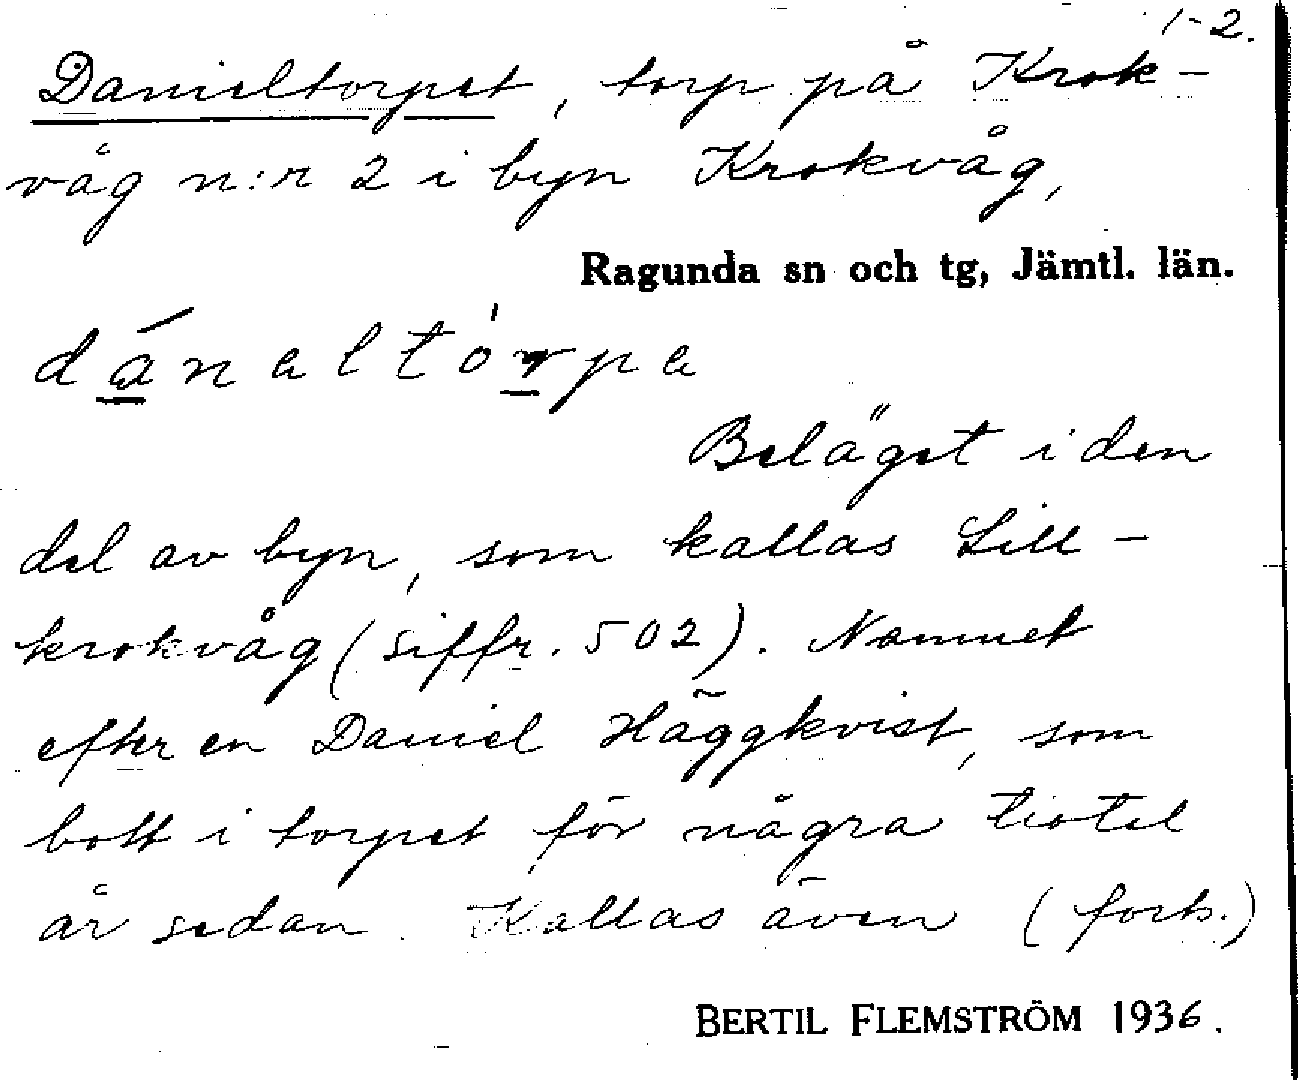 1-2.
Danieltorpet, torp på Krok-
våg n:r 2 i byn Krokvåg,
Ragunda sn och tg, Jämtl. län.
dánaltórpa
Beläget i den
del av byn, som kallas Lill-
krokvåg (siffr. 502). Namnet
efter en Daniel Häggkvist, som
bott i torpet för några tiotal
år sedan. Kallas även (forts.)
BERTIL FLEMSTRÖM 1936.